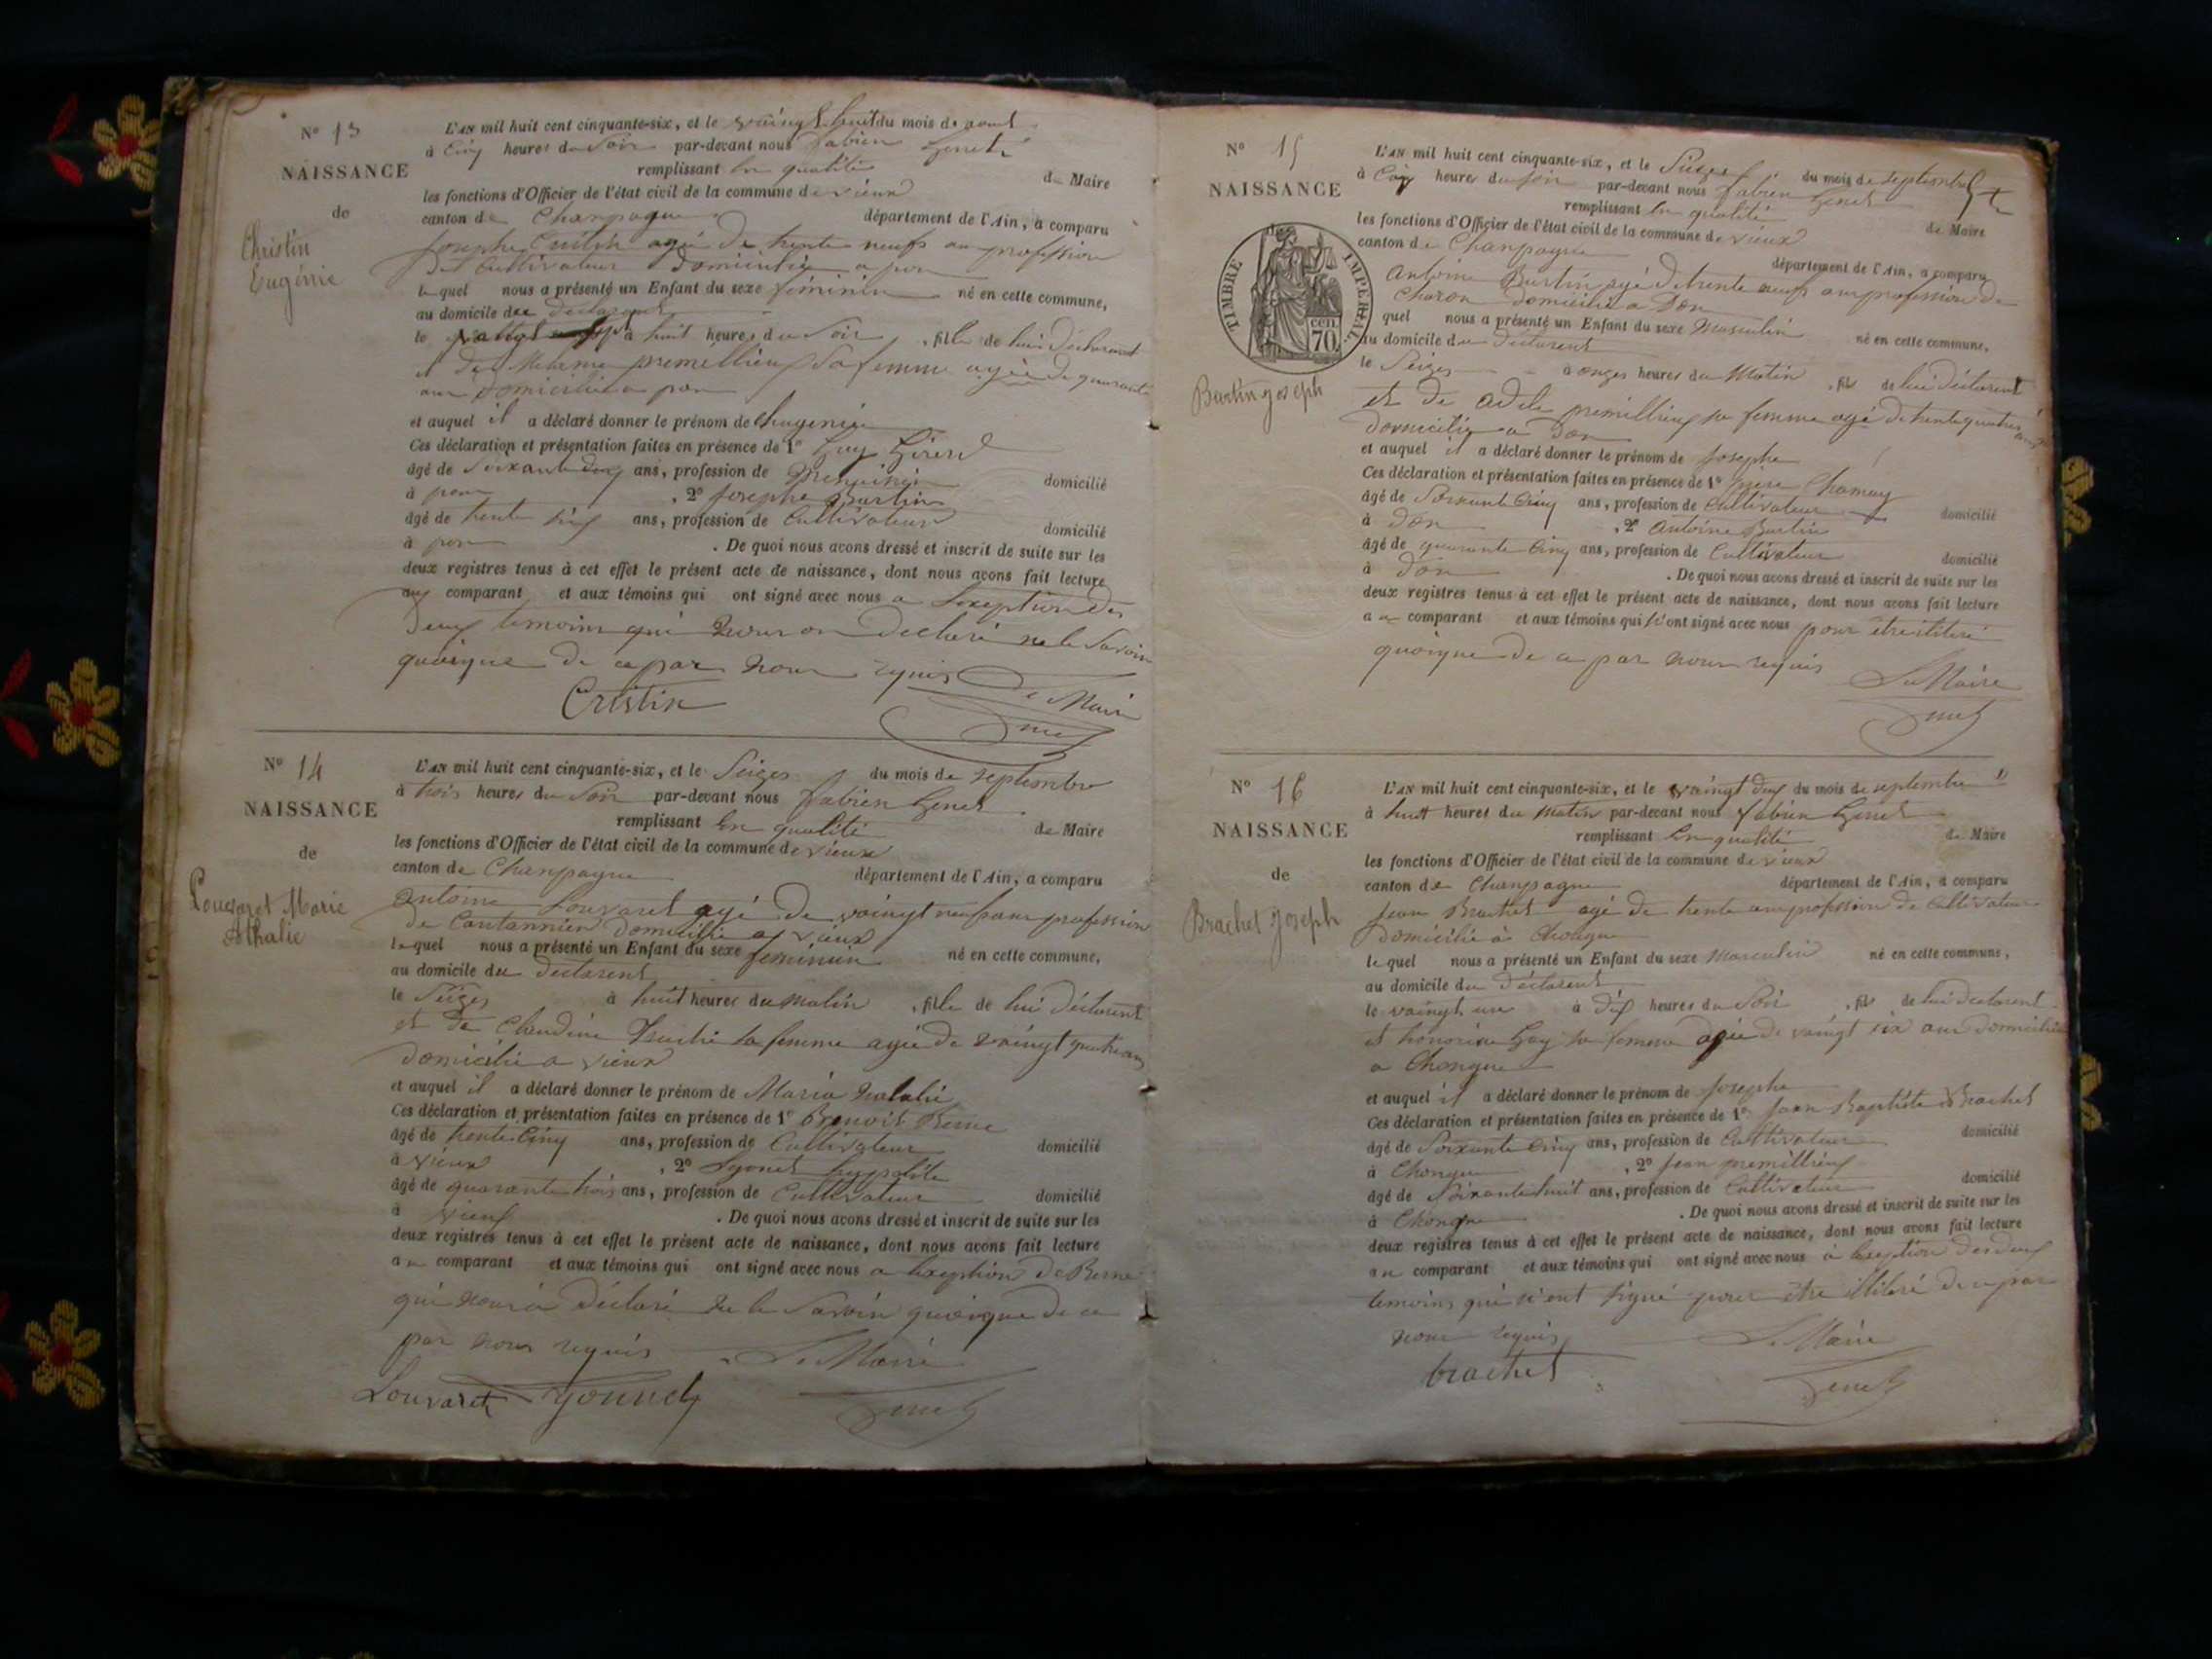 Nº 13
NAISSANCE
de
Christin
Eugénie
L'AN mil huit cent cinquante-six, et le vaingt huit du mois de aout
à Cinq heures du Soir par-devant nous fabien Genet
remplissant en qualité de Maire
les fonctions d'Officier de l'état civil de la commune de vieux
canton de Champagne département de l'Ain, a comparu
Josephe Cristin agé de trente neufs an profession
de Cultivateur domicilié a pon
lequel nous a présenté un Enfant du sexe féminin né en cette commune,
au domicile du declarent
le à huit heures du Soir, fille de lui déclarent
et de premillieu Sa femme agée de quarante
ans domicilié a pon
et auquel il a déclaré donner le prénom de hugenie
Ces déclaration et présentation faites en présence de 1º Guy
âgé de Soixante ans, profession de domicilié
à pon, 2º Josephe Burtin
âgé de trente ans, profession de Cultivateur domicilié
à pon. De quoi nous avons dressé et inscrit de suite sur les
deux registres tenus à cet effet le présent acte de naissance, dont nous avons fait lecture
au comparant et aux témoins qui ont signé avec nous a lexeption des
deux temoins qui nous on declaré ne le Savoir
quoique de ce par nous requis Le Maire
Cristin Genet
Nº 14
NAISSANCE
de
Louvaret Marie
Athalie
L'AN mil huit cent cinquante-six, et le Seizes du mois de septembre
à trois heures du Soir par-devant nous fabien Genet
remplissant en qualité de Maire
les fonctions d'Officier de l'état civil de la commune de vieux
canton de Champagne département de l'Ain, a comparu
antoine Louvaret agé de vaingt neuf ans profession
de Cantonnier domicilié a vieux
lequel nous a présenté un Enfant du sexe feminin né en cette commune,
au domicile du declarent
le Seizes à huit heures du matin, fille de lui déclarent
et de Claudine sa femme agée de vaingt quatre ans
domicilié a vieux
et auquel il a déclaré donner le prénom de Maria
Ces déclaration et présentation faites en présence de 1º Benoit Berne
âgé de trente Cinq ans, profession de Cultivateur domicilié
à vieux, 2º hyppolite
âgé de quarante trois ans, profession de Cultivateur domicilié
à vieux. De quoi nous avons dressé et inscrit de suite sur les
deux registres tenus à cet effet le présent acte de naissance, dont nous avons fait lecture
au comparant et aux témoins qui ont signé avec nous a lexeption de Berne
qui nous a déclaré ne le Savoir quoique de ce
par nous requis Le Maire
Louvaret Genet
Nº 15
NAISSANCE
TIMBRE IMPERIAL
cen. 70.
Burtin joseph
L'AN mil huit cent cinquante-six, et le Seizes du mois de septembre
à Cinq heures du soir par-devant nous fabien Genet
remplissant en qualité de Maire
les fonctions d'Officier de l'état civil de la commune de vieux
canton de Champagne département de l'Ain, a comparu
antoine Burtin agé de trente neufs ans profession de
Charon domicilié a Don
quel nous a présenté un Enfant du sexe Masculin né en cette commune,
au domicile du declarent
le Seizes à onzes heures du Matin, fils de lui declarent
et de adele premillieu sa femme agé de trente quatres ans
domicilié a Don
et auquel il a déclaré donner le prénom de Josephe
Ces déclaration et présentation faites en présence de 1º Chamay
âgé de Soixante Cinq ans, profession de Cultivateur domicilié
à Don, 2º antoine Burtin
âgé de quarante Cinq ans, profession de Cultivateur domicilié
à Don. De quoi nous avons dressé et inscrit de suite sur les
deux registres tenus à cet effet le présent acte de naissance, dont nous avons fait lecture
au comparant et aux témoins qui n'ont signé avec nous pour être
quoique de ce par nous requis
Le Maire
Genet
Nº 16
NAISSANCE
de
Brachet joseph
L'AN mil huit cent cinquante-six, et le vaingt deux du mois de septembre
à huit heures du matin par-devant nous fabien Genet
remplissant en qualité de Maire
les fonctions d'Officier de l'état civil de la commune de vieux
canton de Champagne département de l'Ain, a comparu
Jean Brachet agé de trente ans profession de Cultivateur
domicilié à Chongne
lequel nous a présenté un Enfant du sexe Masculin né en cette commune,
au domicile du déclarent
le vaingt un à dix heures du Soir, fils de lui declarent
et honorine Guy sa femme agée de vaingt six ans domicilié
a Chongne
et auquel il a déclaré donner le prénom de Josephe
Ces déclaration et présentation faites en présence de 1º Jean Baptiste Brachet
âgé de Soixante Cinq ans, profession de Cultivateur domicilié
à Chongne, 2º Jean premillieux
âgé de Soixante huit ans, profession de Cultivateur domicilié
à Chongne. De quoi nous avons dressé et inscrit de suite sur les
deux registres tenus à cet effet le présent acte de naissance, dont nous avons fait lecture
au comparant et aux témoins qui ont signé avec nous à lexeption des deux
temoins qui n'ont signé pour être illiteré de ce par
nous requis Le Maire
brachet Genet